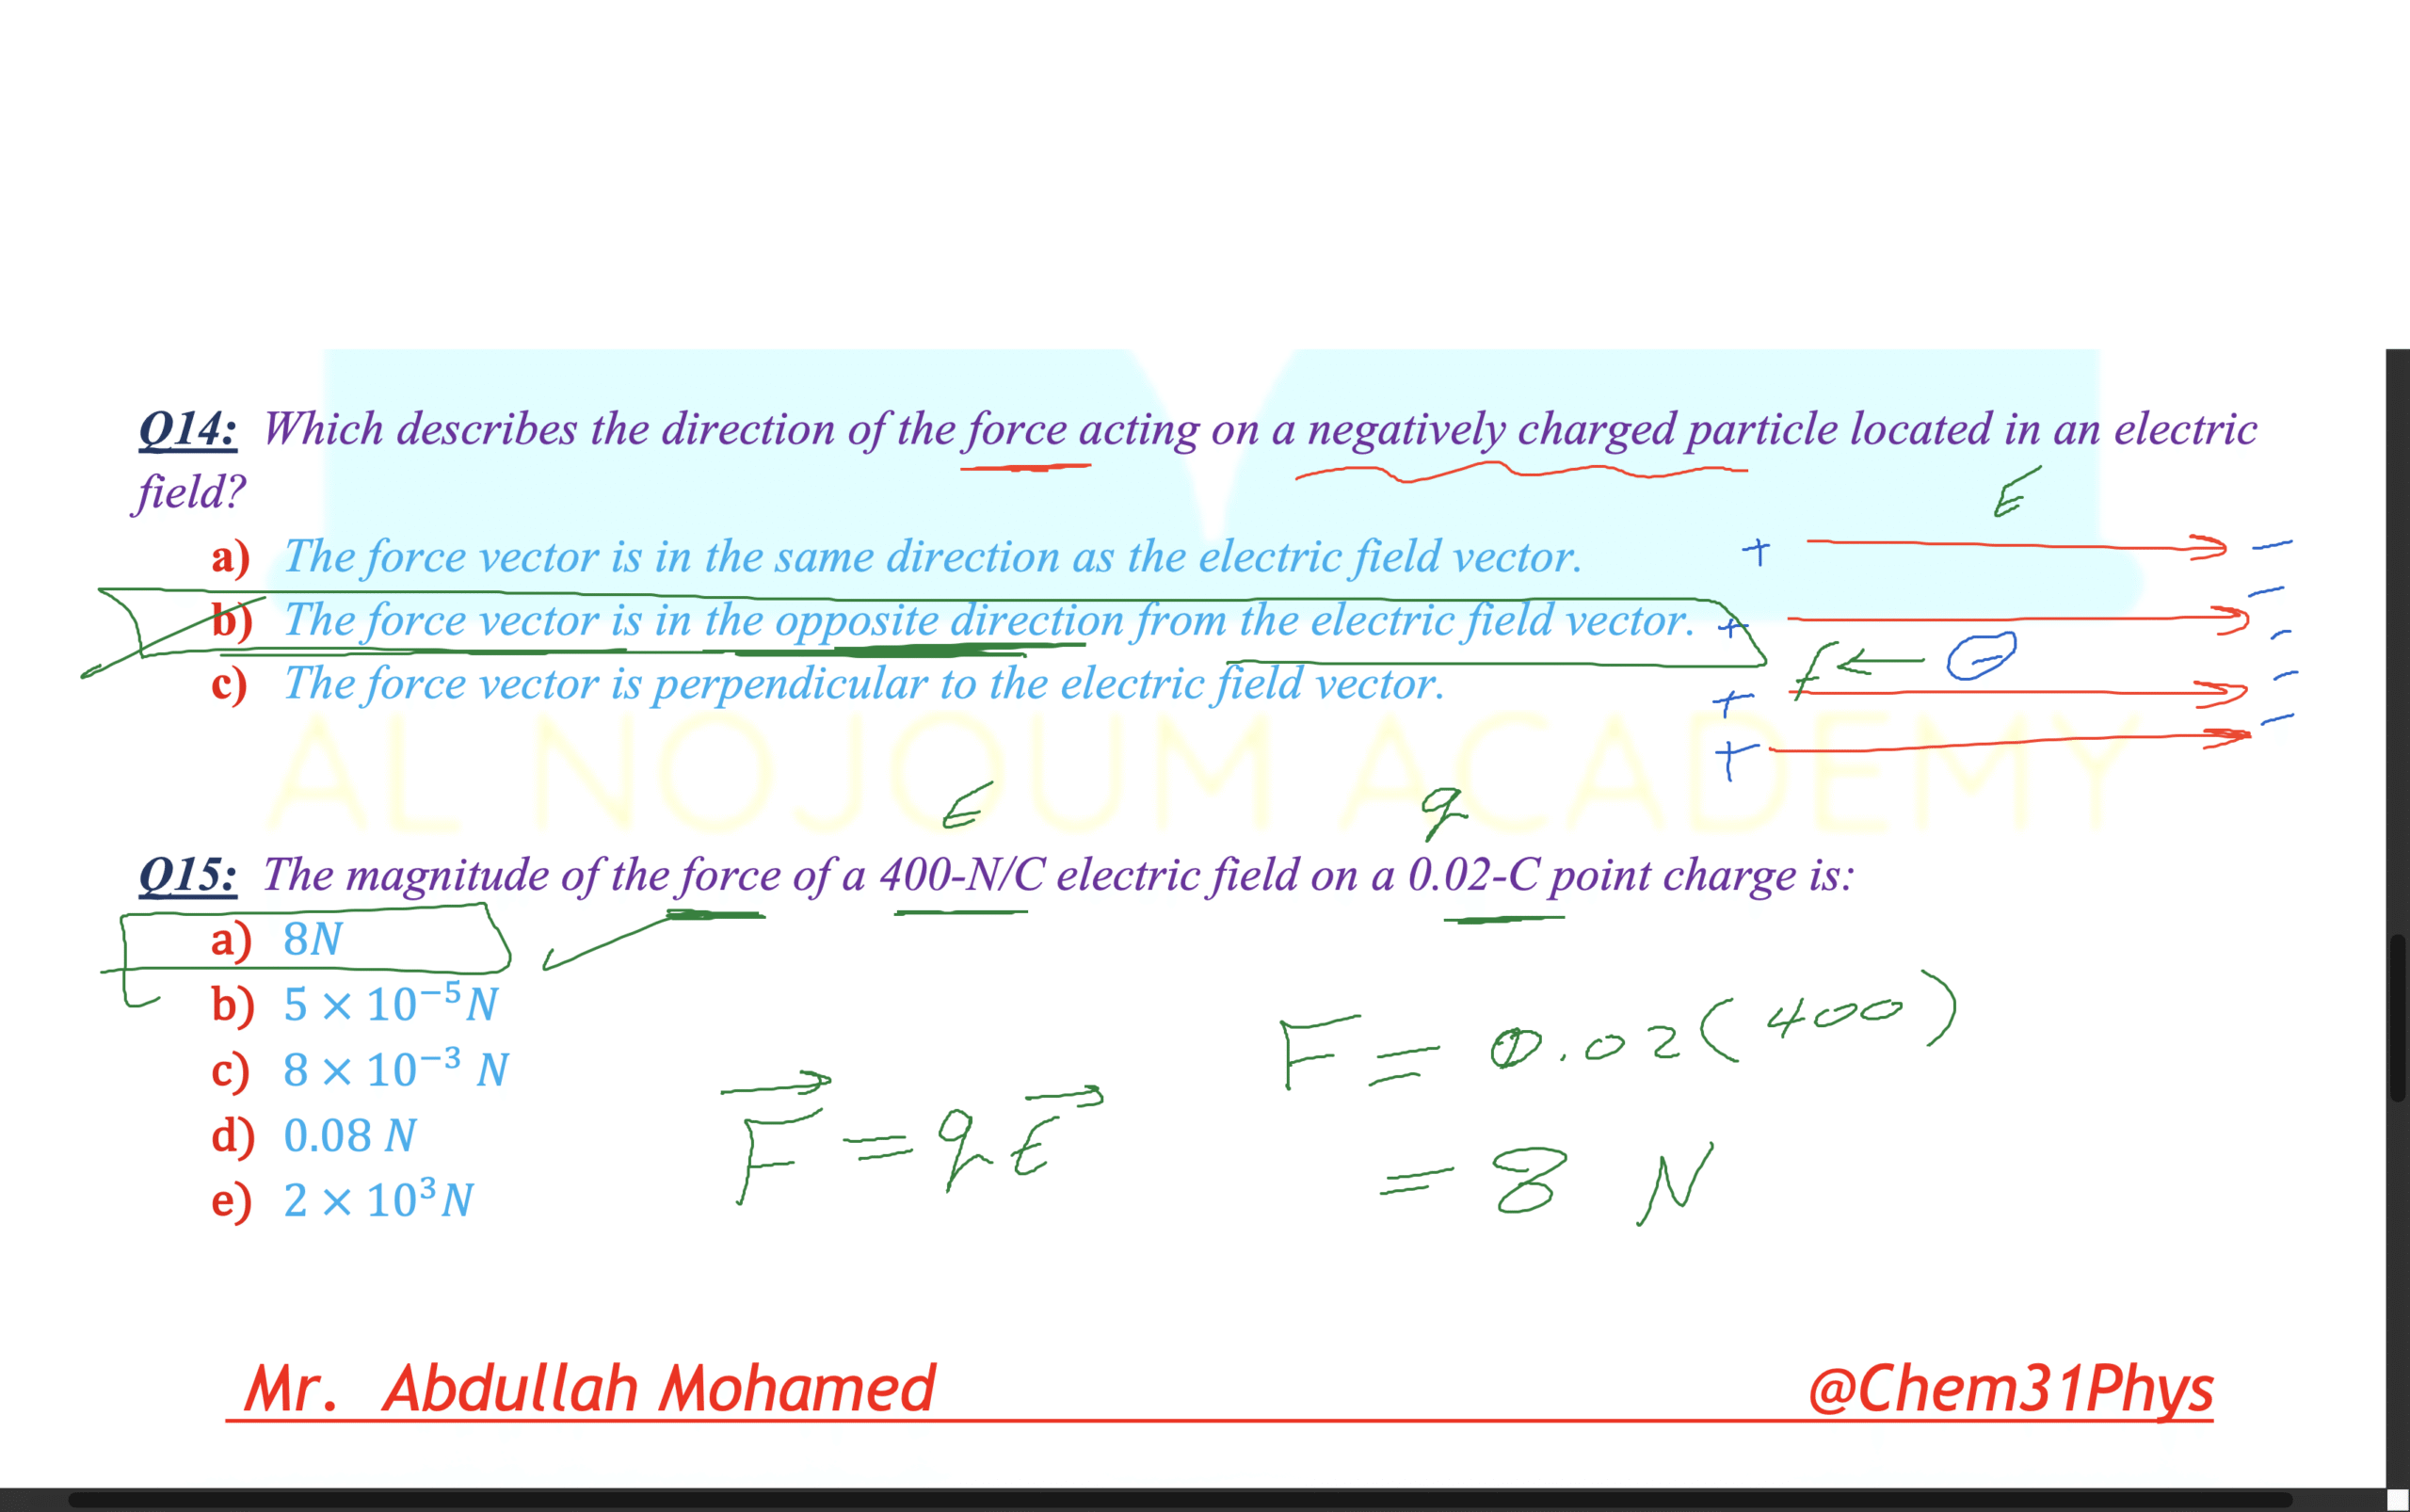 Q14: Which describes the direction of the force acting on a negatively charged particle located in an electric
field?
E
a) The force vector is in the same direction as the electric field vector.
+ −
b) The force vector is in the opposite direction from the electric field vector.
+ −
−
F ← −
c) The force vector is perpendicular to the electric field vector.
+ −
+ −
AL NOJOUM ACADEMY
E q
Q15: The magnitude of the force of a 400-N/C electric field on a 0.02-C point charge is:
a) 8N
b) 5 × 10⁻⁵ N
c) 8 × 10⁻³ N
d) 0.08 N
e) 2 × 10³ N
F = qE
F = 0.02(400)
= 8 N
Mr. Abdullah Mohamed
@Chem31Phys